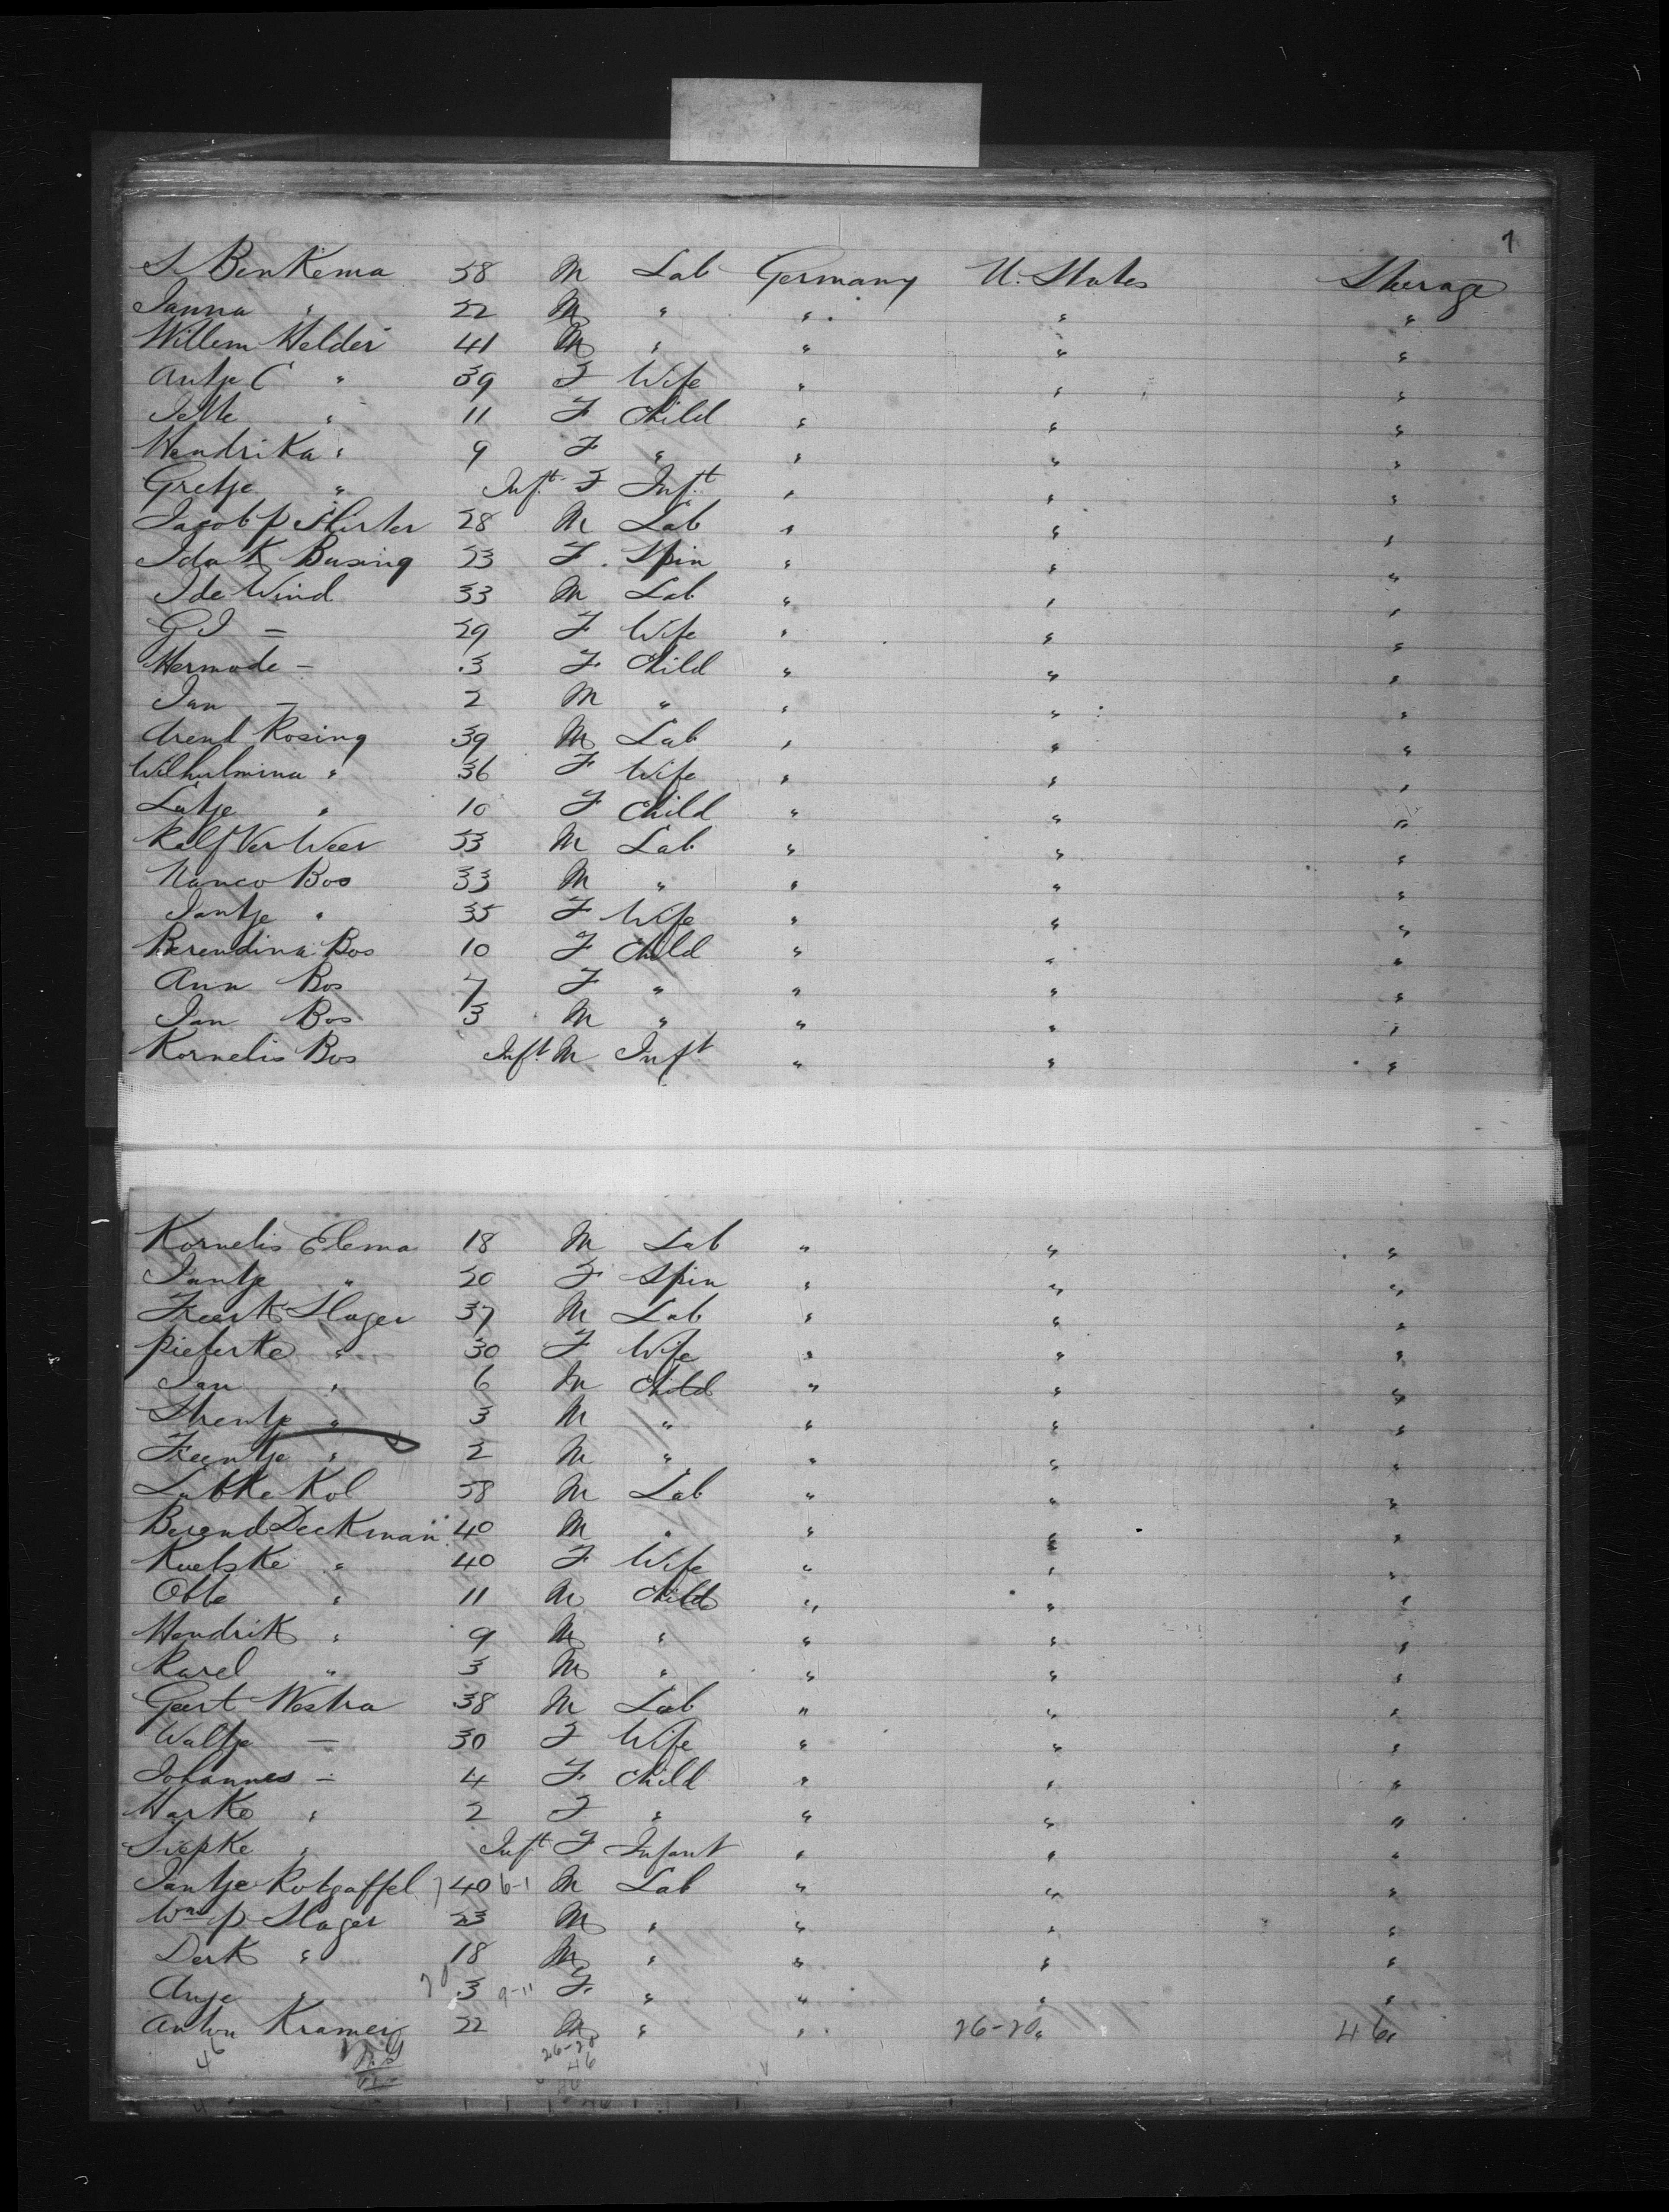 7
S. BenKema 58 M Lab Germany U. States Steerage
Janna " 22 M " " " "
Willem Helder 41 M " " " "
Antje C " 39 F Wife " " "
Jette " 11 F Child " " "
HendriKa " 9 F " " " "
Gretje " Inft F Inft " " "
Jacob P 28 M Lab " " "
Ida K Busing 53 F Spin " " "
I de Wind 33 M Lab " " "
G J = 29 F Wife " " "
Hermode - 3 F Child " " "
Jan - 2 M " " " "
Arend Rosing 39 M Lab " " "
Wilhulmina " 36 F Wife " " "
Lutje " 10 F Child " " "
Ralf Ver Weer 53 M Lab " " "
Nanco Bos 33 M " " " "
Jantje " 35 F Wife " " "
Berendina Bos 10 F Child " " "
Ann Bos 7 F " " " "
Jan Bos 3 M " " " "
Kornelis Bos Inft M Inft " " "
Kornelis Elema 18 M Lab " " "
Jantje " 20 F Spin " " "
FreerK Slager 37 M Lab " " "
PieterKe " 30 F Wife " " "
Jan " 6 M Child " " "
" 3 M " " " "
" 2 M " " " "
LubKe Kol 58 M Lab " " "
Berend DecKman 40 M " " " "
" 40 F Wife " " "
" 11 M Child " " "
HendriK " 9 M " " " "
Karel " 3 M " " " "
Geert Westra 38 M Lab " " "
Waltje - 30 F Wife " " "
Johannes - 4 F Child " " "
HarKe " 2 F " " " "
SiepKe " Inft F Infant " " "
Jantje Rotgaffel 40 6-1 M Lab " " "
Wm P. Slager 23 M " " " "
DerK " 18 M " " " "
Anje " 3 9-11 F " " " "
Anton Kramer 22 M " " 26-20 " 46 "
46 26-20
46